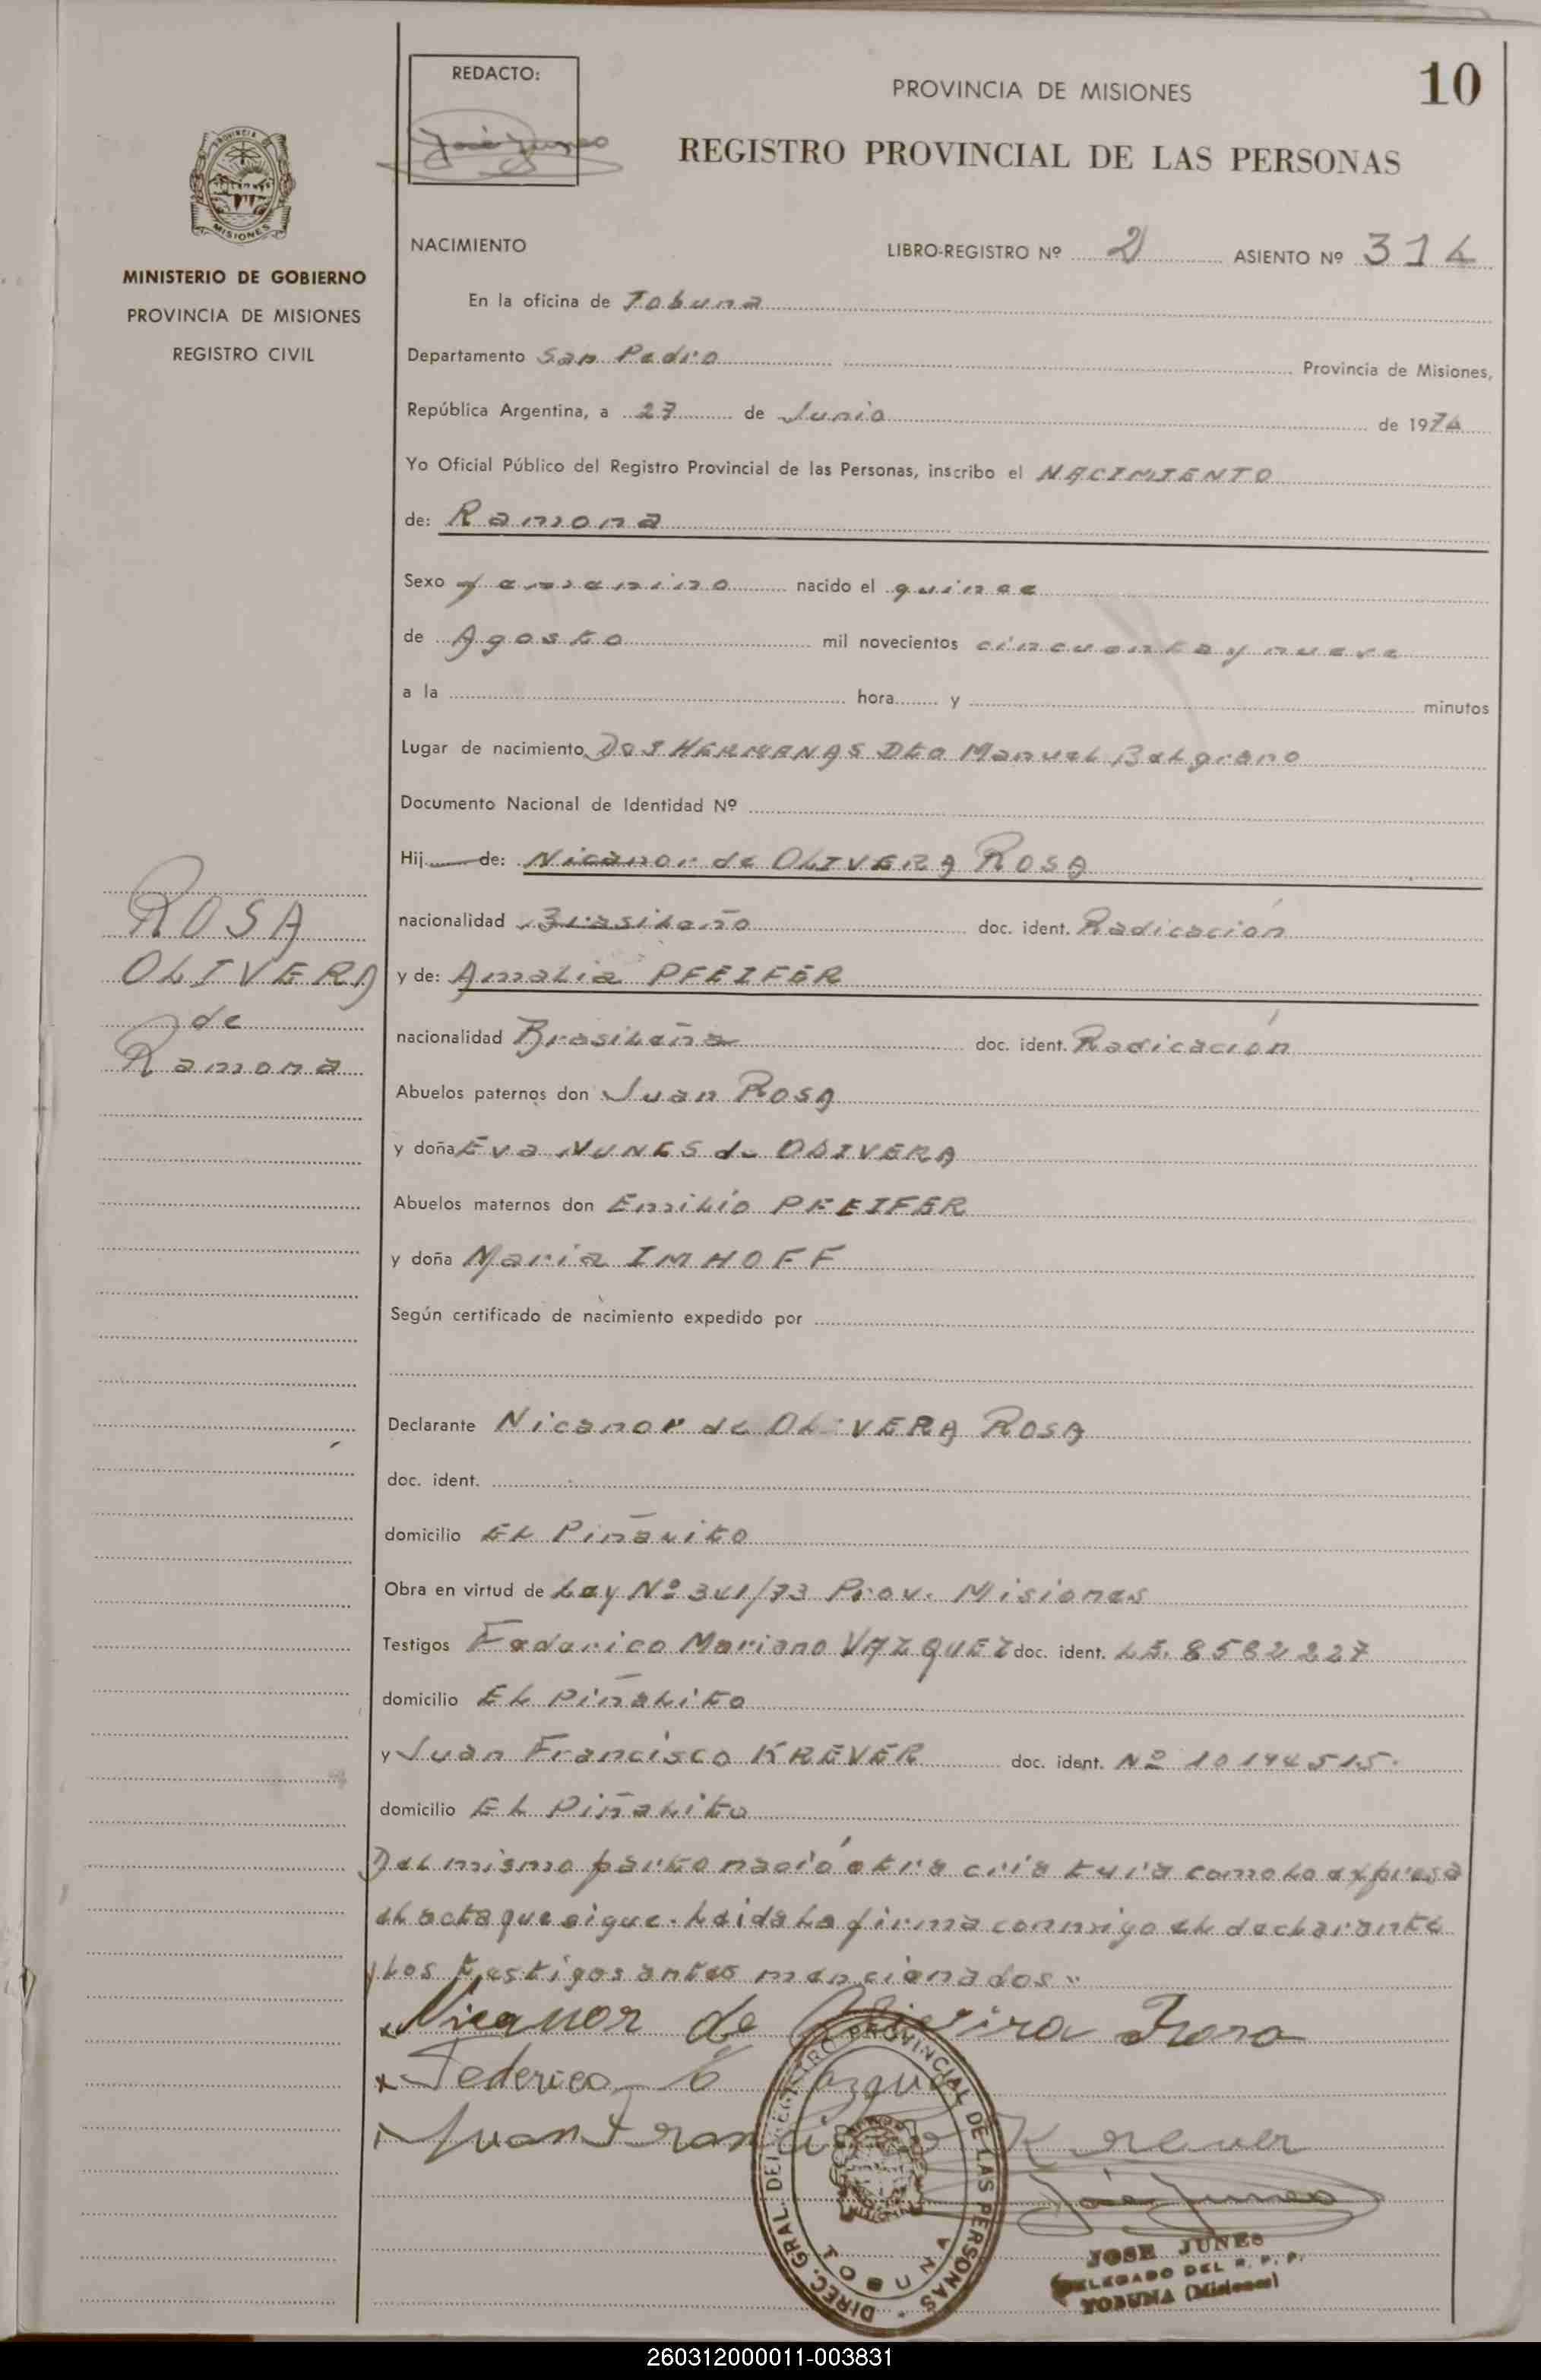 REDACTO:
PROVINCIA DE MISIONES
10
REGISTRO PROVINCIAL DE LAS PERSONAS
MISIONES
MINISTERIO DE GOBIERNO
PROVINCIA DE MISIONES
REGISTRO CIVIL
NACIMIENTO LIBRO-REGISTRO Nº 2 ASIENTO Nº 314
En la oficina de Tobuna
Departamento San Pedro Provincia de Misiones,
República Argentina, a 27 de Junio de 1974
Yo Oficial Público del Registro Provincial de las Personas, inscribo el NACIMIENTO
de: Ramona
Sexo femenino nacido el quince
de Agosto mil novecientos cincuenta y nueve
a la hora y minutos
Lugar de nacimiento DOS HERMANAS Dto Manuel Belgrano
Documento Nacional de Identidad Nº
Hij de: Nicanor de OLIVERA ROSA
nacionalidad Brasileño doc. ident. Radicación
y de: Amalia PFEIFER
nacionalidad Brasileña doc. ident. Radicación
Abuelos paternos don Juan ROSA
y doña Eva NUNES de OLIVERA
Abuelos maternos don Emilio PFEIFER
y doña Maria IMHOFF
Según certificado de nacimiento expedido por
Declarante Nicanor de OLIVERA ROSA
doc. ident.
domicilio El Piñarito
Obra en virtud de Ley Nº 341/73 Prov. Misiones
Testigos Federico Mariano VAZQUEZ doc. ident. L.E. 8582227
domicilio El Piñalito
y Juan Francisco KREVER doc. ident. Nº 10194515.
domicilio El Piñalito
Del mismo parto nació otra criatura como lo expresa
el acta que sigue. Leida la firma conmigo el declarante
y los testigos antes mencionados.
ROSA
OLIVERA
de
Ramona
Nicanor de Oliveira Rosa
Federico Vazquez
Juan Francisco Krever
DIREC. GRAL. DEL REGISTRO PROVINCIAL DE LAS PERSONAS
TOBUNA
JOSE JUNES
DELEGADO DEL R. P. P.
TOBUNA (Misiones)
260312000011-003831